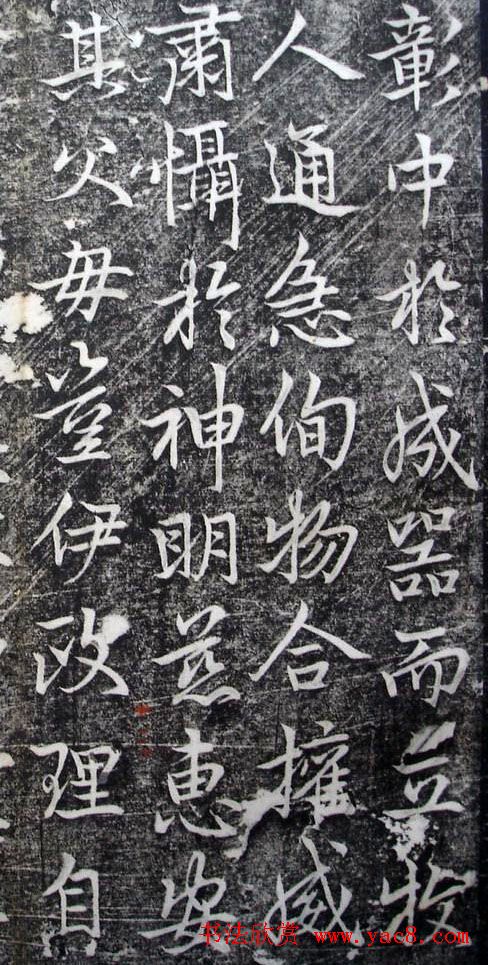 彰中於成器而立牧
人通急徇物合擁威
肅懾於神明慈惠安
其父母豈伊政理自
书法欣赏 www.yac8.com